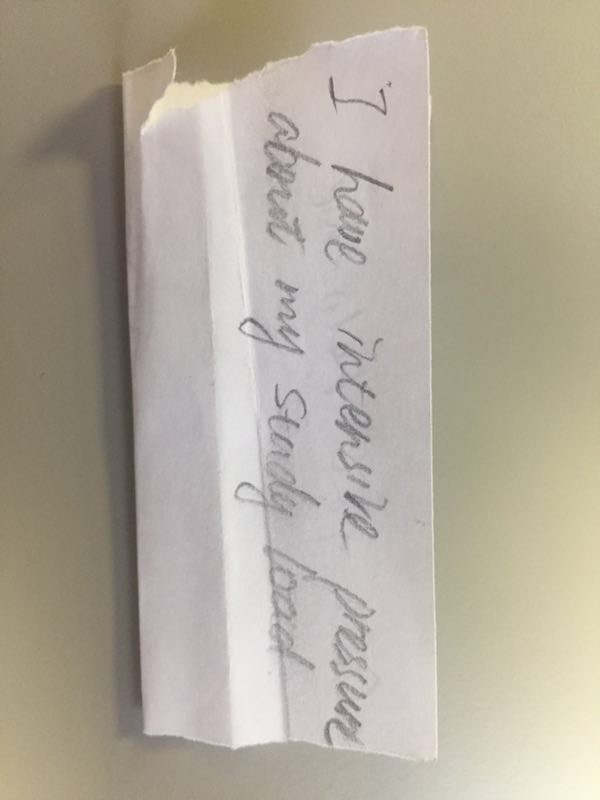 I have intensive pressure
about my study load